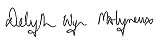 Delyth Wyn Molyneux